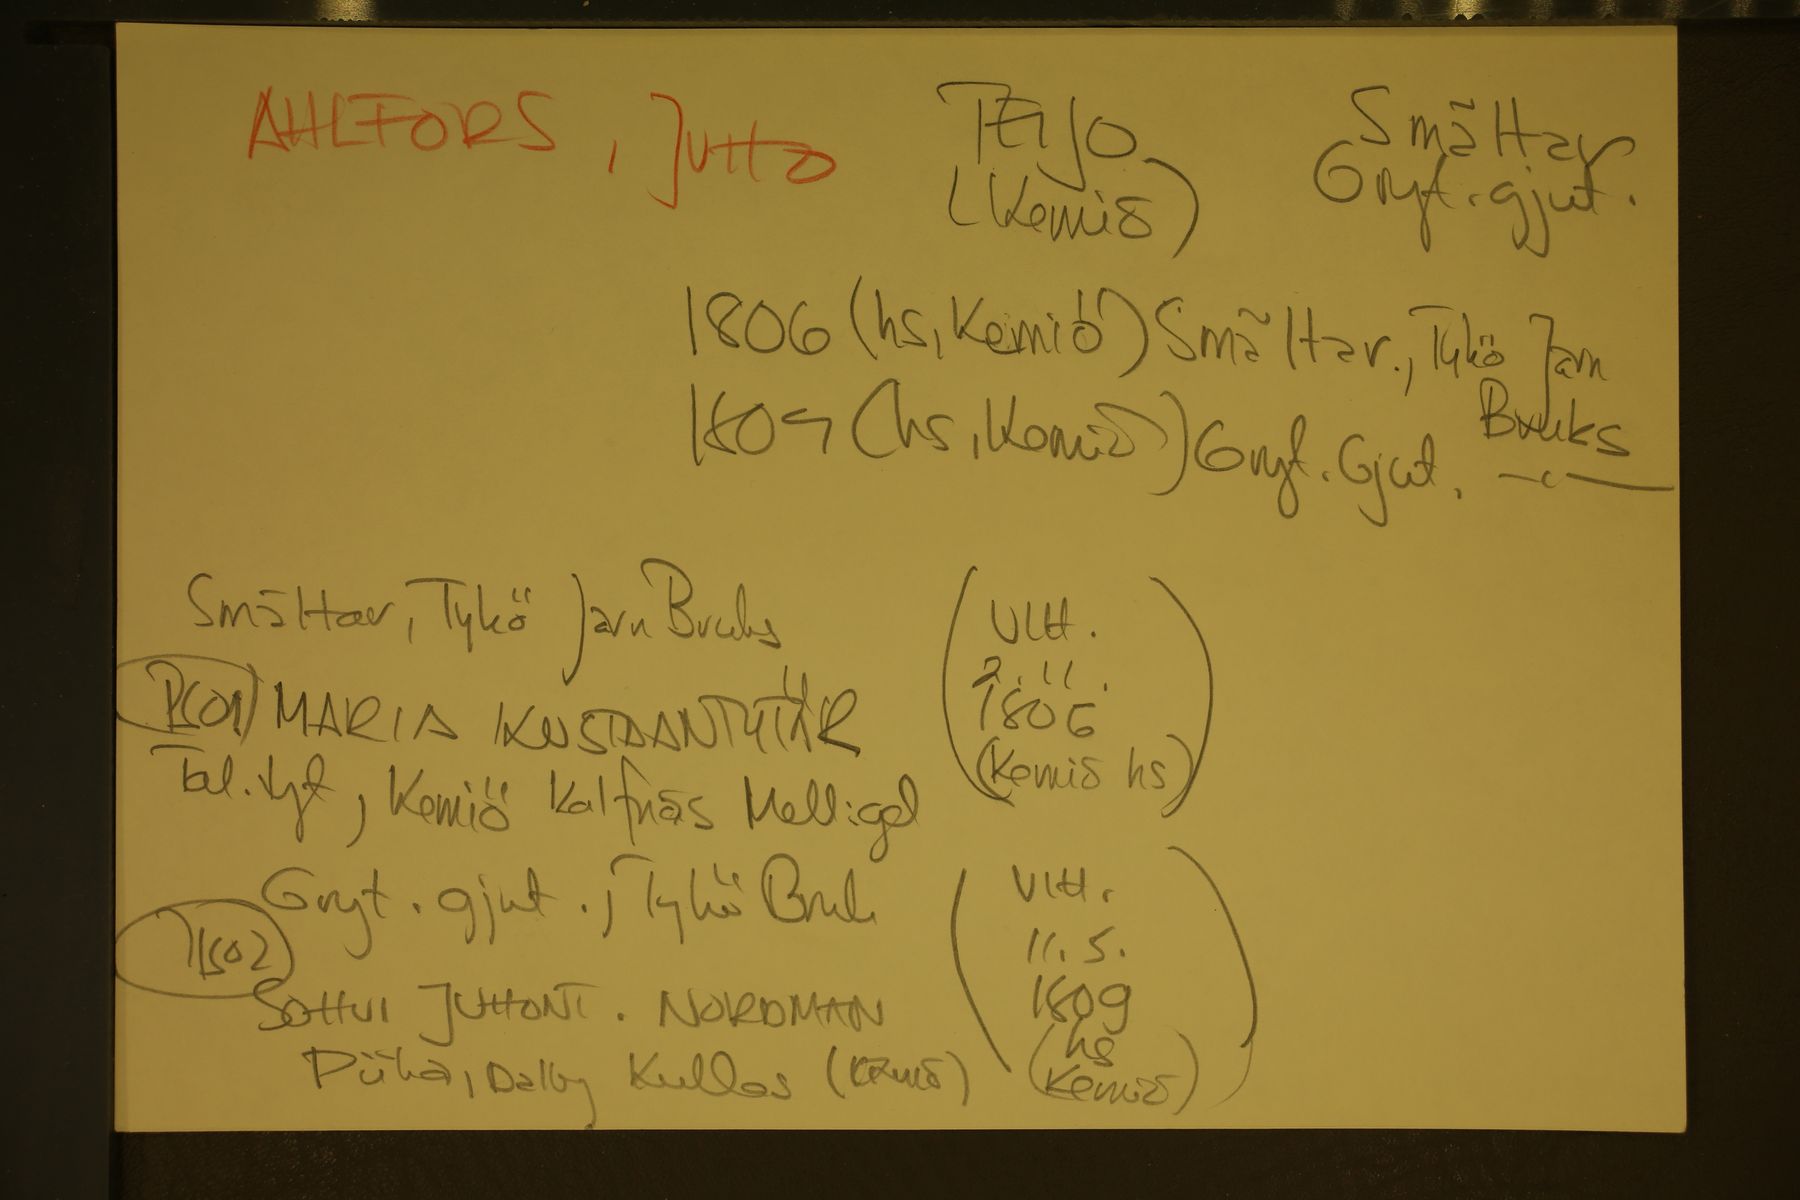 AHLFORS, JUHO TEIJO Smältar
(Kemiö) Gryt.gjut.
1806 (hs, Kemiö) Smältar., Tykö Jarn
Bruks
1809 (hs, Kemiö) Gryt. Gjut.
Smältar, Tykö Jarn Bruks
PSO1) MARIA KUSTAANTYTÄR
Tal. tyt, Kemiö Kalfnäs Mellgel
VIH.
2.11.
1806
(Kemiö hs)
Gryt. gjut., Tykö Bruk
PSO2
SOHVI JUHONT. NORDMAN
Piika, Dalby Kullas (Kemiö)
VIH.
11.5.
1809
hs
(Kemiö)